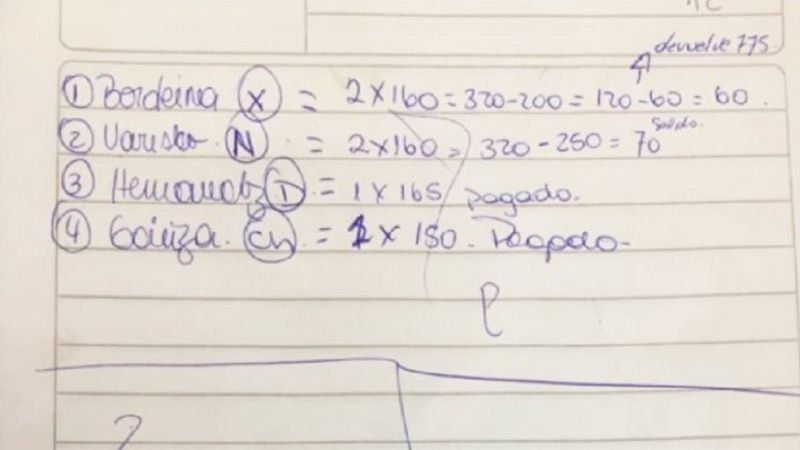 devuelve 775
① Bordeira Ⓧ = 2 x 160 = 320 - 200 = 120 - 60 = 60.
② Varisko. Ⓝ = 2 x 160 = 320 - 250 = 70 saldo.
③ = 1 x 165 pagado.
④ Gainza. (Ch) = 1 x 150. Pagado-